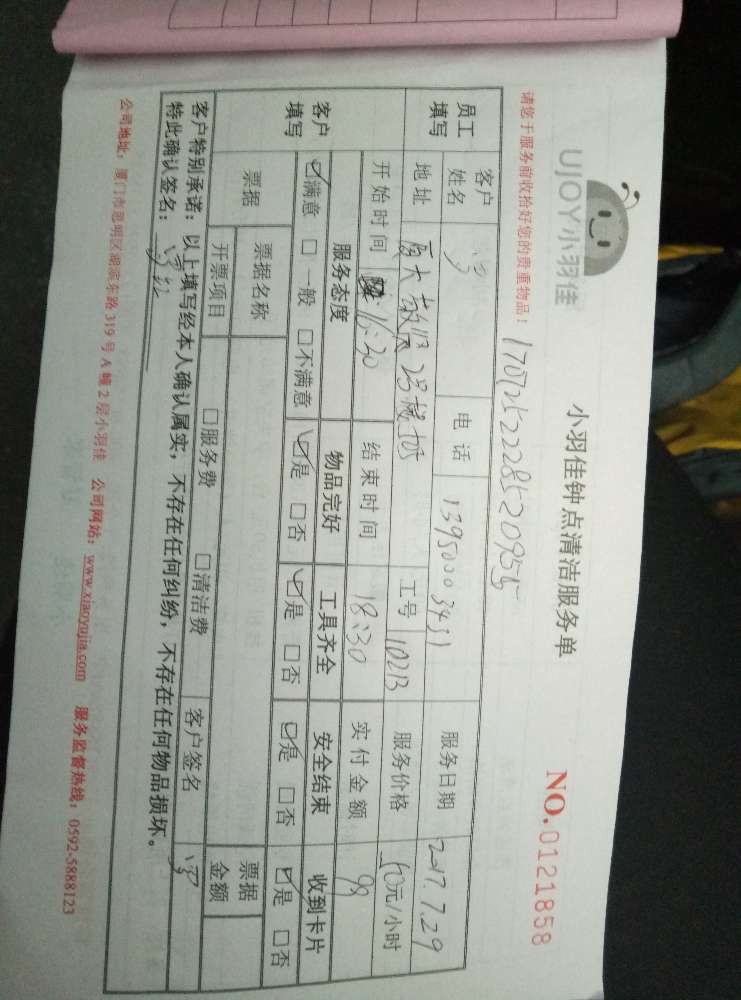 UJOY小羽佳
小羽佳钟点清洁服务单
NO.0121858
请您于服务前收拾好您的贵重物品！
员工填写 客户姓名 电话 服务日期 2017.7.29
地址 工号 10213 服务价格 元/小时
开始时间 16:30 结束时间 18:30 实付金额 98
客户填写 服务态度 物品完好 工具齐全 安全结束 收到卡片
☑满意 □一般 □不满意 ☑是 □否 ☑是 □否 ☑是 □否 ☑是 □否
票据 票据名称 票据金额
开票项目 □服务费 □清洁费 客户签名
客户特别承诺：以上填写经本人确认属实，不存在任何纠纷，不存在任何物品损坏。
特此确认签名：
公司地址：厦门市思明区湖滨东路319号A幢2层小羽佳 公司网站：www.xiaoyujia.com 服务监督热线：0592-5888123